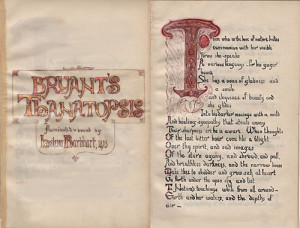 BRYANT'S
THANATOPSIS
bound by
To him who in the love of nature holds
communion with her visible
forms she speaks
A various language; for his gayer
hours
She has a voice of gladness and
a smile
and eloquence of beauty and
she glides
Into his darker musings with a mild
And healing sympathy that steals away
Their sharpness ere he is aware. When thoughts
Of the last bitter hour come like a blight
Over thy spirit, and sad images
Of the stern agony, and shroud, and pall,
And breathless darkness, and the narrow house
Make thee to shudder and grow sick at heart
Go forth under the open sky, and list
To Nature's teachings while from all around—
Earth and her waters, and the depths of
air—